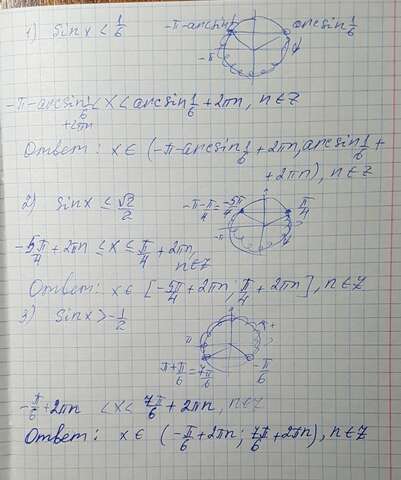 1) sin x < 1/6
-π-arcsin 1/6
arcsin 1/6
-π
-π-arcsin 1/6 + 2πn < x < arcsin 1/6 + 2πn, n∈Z
Ответ: x∈ (-π-arcsin 1/6 + 2πn, arcsin 1/6 +
+2πn), n∈Z
2) sin x ≤ √2/2
-π-π/4 = -5π/4
π/4
-π
-5π/4 + 2πn ≤ x ≤ π/4 + 2πn,
n∈Z
Ответ: x∈ [-5π/4 + 2πn; π/4 + 2πn], n∈Z
3) sin x > -1/2
π
π+π/6 = 7π/6
-π/6
-π/6 + 2πn < x < 7π/6 + 2πn, n∈Z
Ответ: x∈ (-π/6 + 2πn; 7π/6 + 2πn), n∈Z